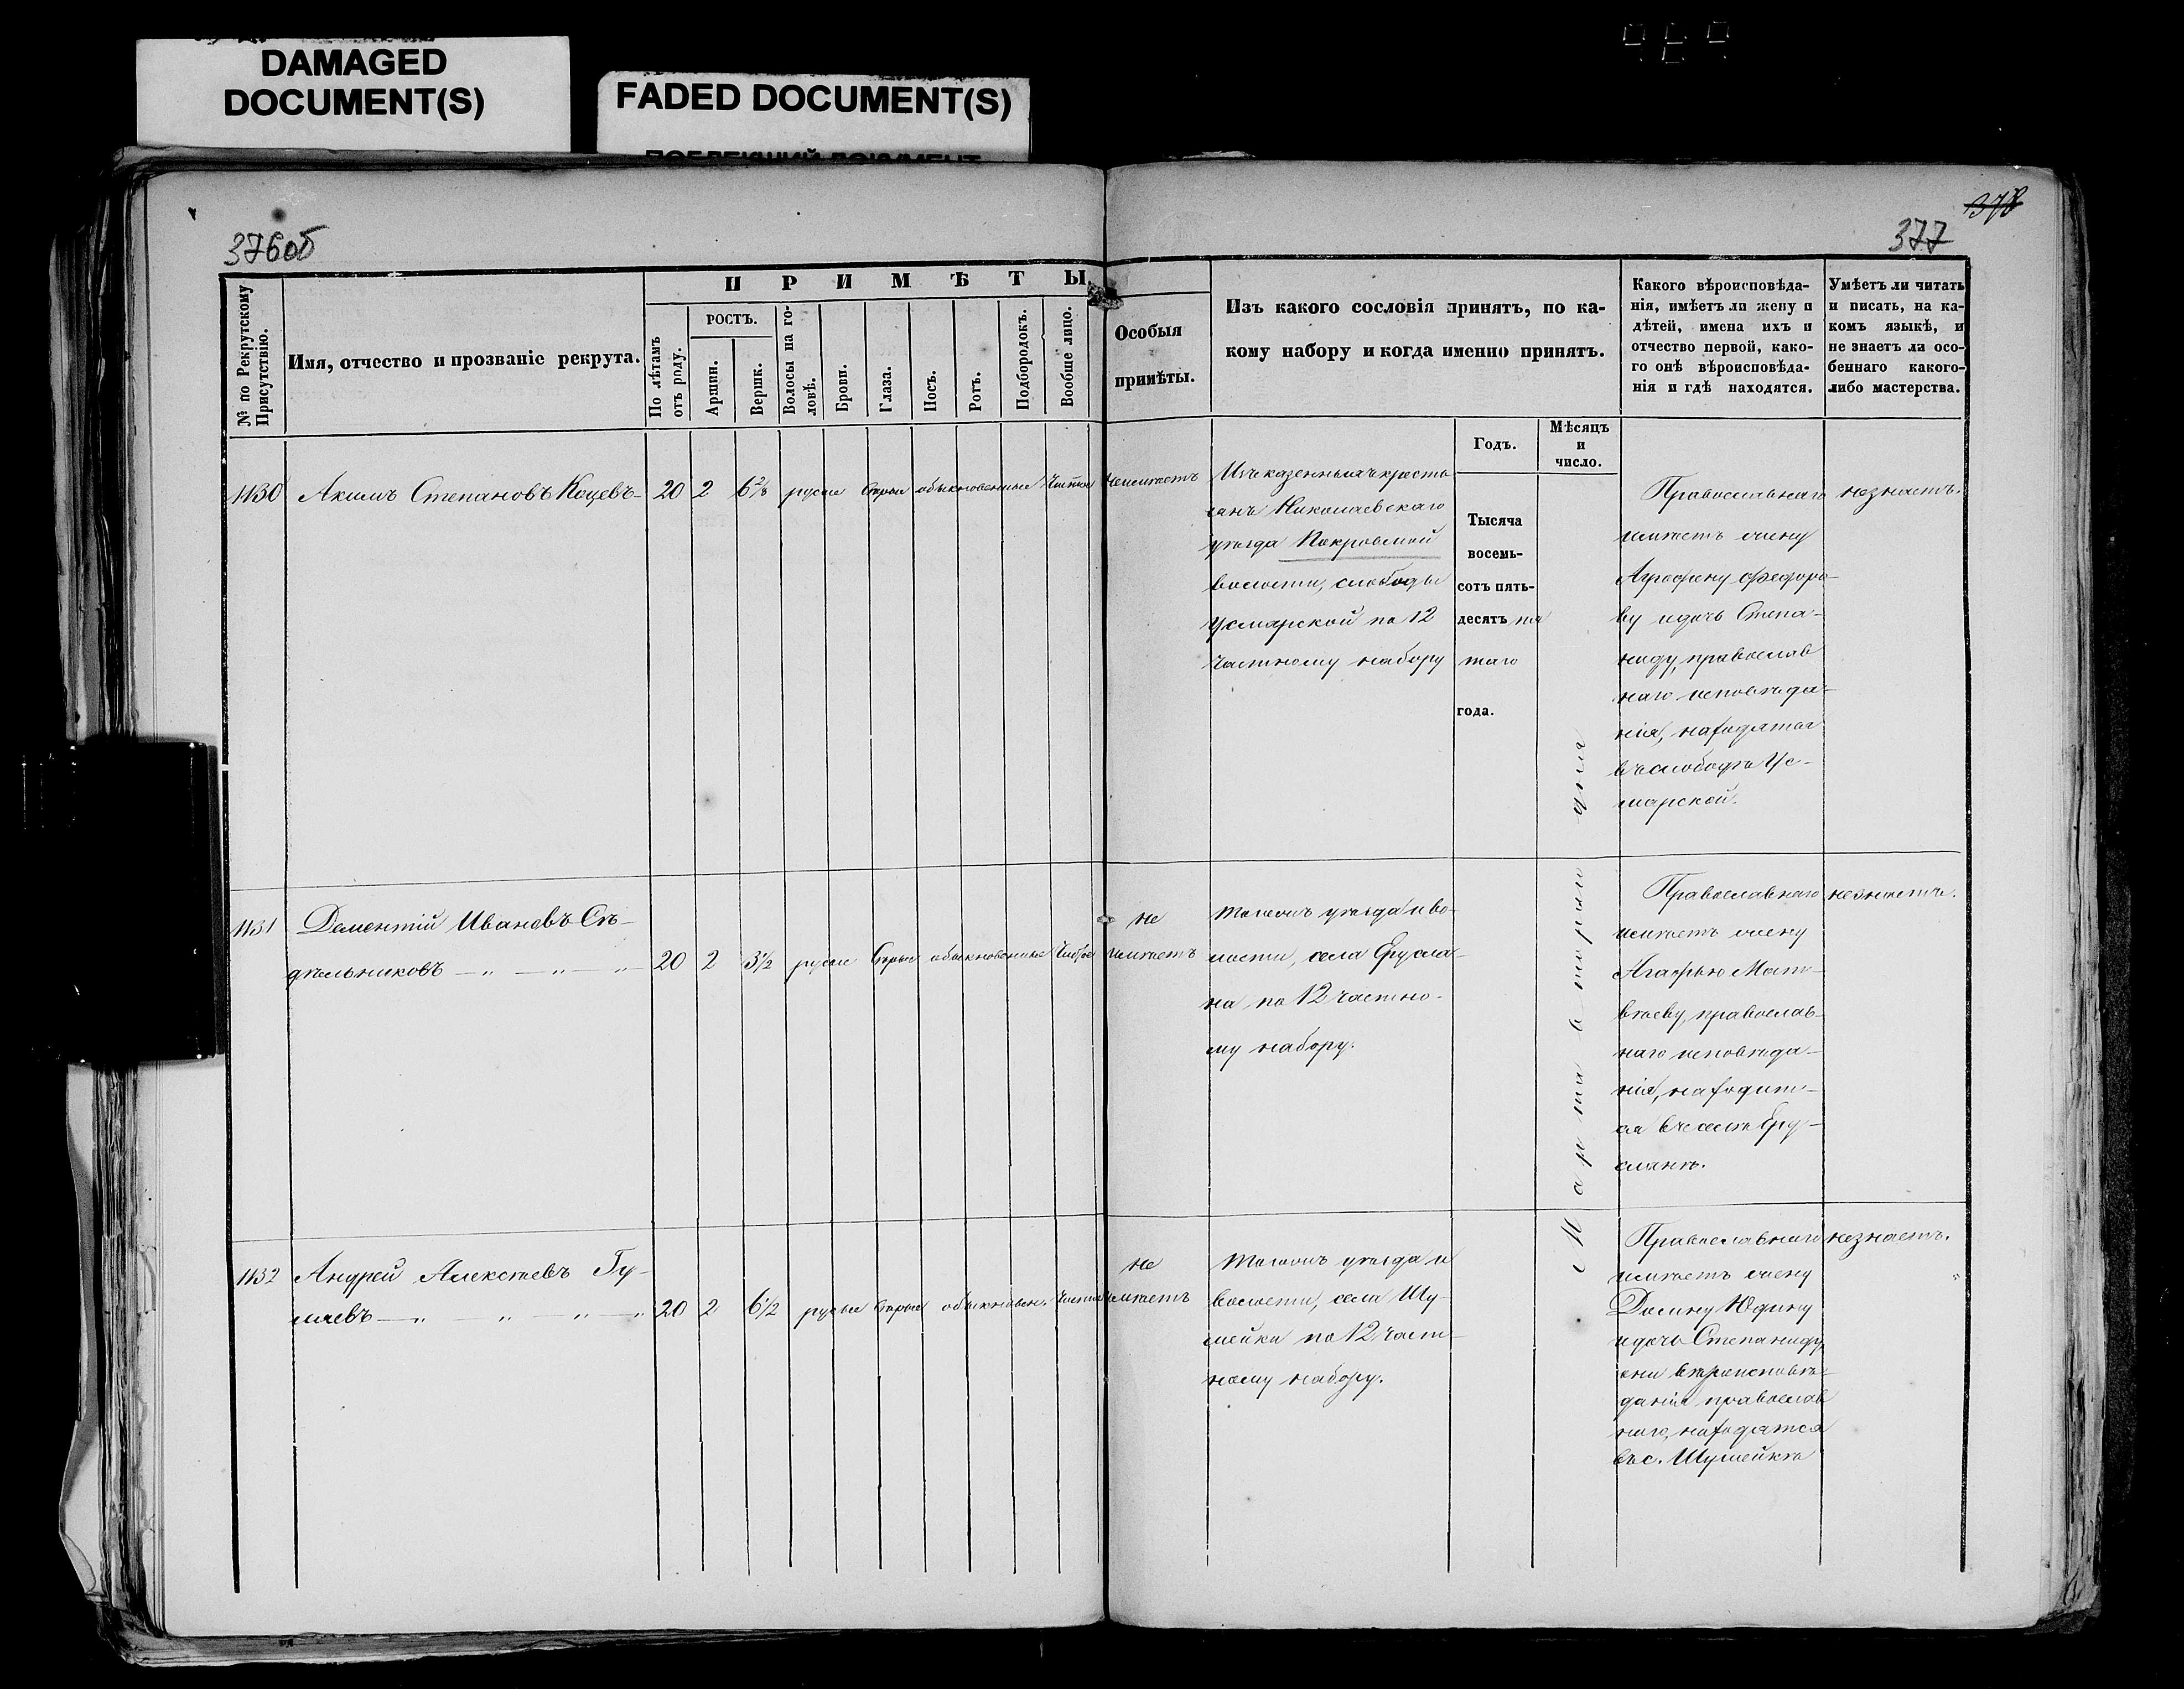 DAMAGED
DOCUMENT(S)
FADED DOCUMENT(S)
376об
378
377
№ по Рекрутскому
Присутствію.
Имя, отчество и прозваніе рекрута.
ПРИМѢТЫ.
По лѣтамъ
отъ роду.
РОСТЪ.
Аршин.
Вершк.
Волосы на го-
ловѣ.
Брови.
Глаза.
Носъ.
Ротъ.
Подбородокъ.
Вообще лицо.
Особыя
примѣты.
Изъ какого сословія принятъ, по ка-
кому набору и когда именно принятъ.
Какого вѣроисповѣда-
нія, имѣетъ ли жену и
дѣтей, имена ихъ и
отчество первой, како-
го онѣ вѣроисповѣда-
нія и гдѣ находятся.
Умѣетъ ли читать
и писать, на ка-
комъ языкѣ, и
не знаетъ ли осо-
беннаго какого-
либо мастерства.
Годъ.
Мѣсяцъ
и
число.
Тысяча
восемь-
сотъ пять-
десятъ пя
таго
года.
Марта втораго дня
1130 Акимъ Степановъ Коцевъ 20 2 6 2/8 русые Сѣрые обыкновенные Чистое
неимѣетъ
Изъ казенныхъ кресть
янъ Николаевскаго
уѣзда Покровской
волости, слободы
Узморской по 12
частному набору
Православнаго
имѣетъ жену
Агрофену Федоро-
ву и дочь Степа-
ниду, православ
наго исповѣда-
нія, находятся
въ слободѣ Уз-
морской.
незнаетъ.
1131 Дементій Ивановъ Сѣ-
дѣльниковъ 20 2 3 1/2 русые Сѣрые обыкновенные Чистое
не
имѣетъ
Тогожъ уѣзда и во-
лости, села Ерусла-
на по 12 частно-
му набору.
Православнаго
имѣетъ жену
Агафью Мат-
вѣеву, православ-
наго исповѣда-
нія, находит-
ся въ селѣ Еру-
сланѣ.
незнаетъ.
1132 Андрей Алексѣевъ Гу-
ляевъ 20 2 6 1/2 русые Сѣрые обыкновен. Чистое
не
имѣетъ
Тогожъ уѣзда и
волости, села Шу-
мейки по 12 част-
ному набору.
Православнаго
имѣетъ жену
Домну Юдину
и дочь Степаниду,
они вѣроисповѣ-
данія православ
наго, находятся
въ с. Шумейкѣ
незнаетъ.